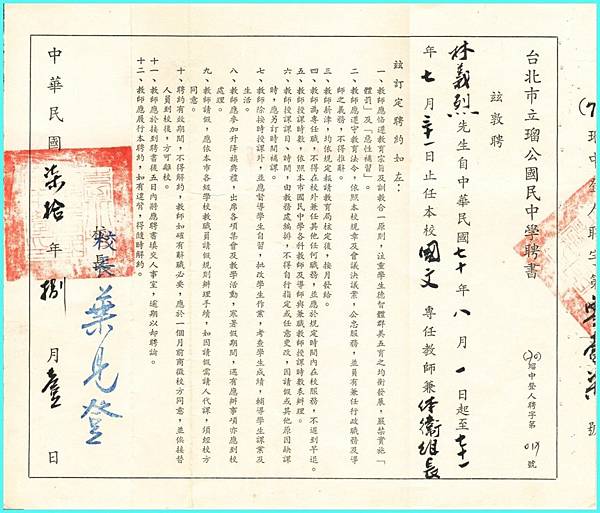 台北市立瑠公國民中學聘書
(70)瑠中登人聘字第019號
茲敦聘
林義烈先生自中華民國七十年八月一日起至七十一
年七月三十一日止任本校國文專任教師兼体衛組長
茲訂定聘約如左：
一、教師應恪遵教育宗旨及訓教合一原則，注重學生德智體群美五育之均衡發展，嚴禁實施「
體罰」及「惡性補習」。
二、教師應遵守教育法令，依照本校規章及會議決議案，公忠服務，並負有兼任行政職務及導
師之義務，不得推辭。
三、教師薪津，均依規定報請教育局核定後，按月發給。
四、教師為專任職，不得在校外兼任其他任何職務，並應於規定時間內在校服務，不遲到早退。
五、教師授課時數，依照本市國民中學各科教師及導師與兼職教師授課時數表辦理。
六、教師授課課目、時間，由教務處編排，不得自行指定或任意更改，因請假或其他原因缺課
時，應另訂時間補課。
七、教師除按時授課外，並應督導學生自習，批改學生作業，考查學生成績，輔導學生課業及
生活。
八、教師應參加升降旗典禮，出席各項集會及教學活動，寒暑假期間，遇有應辦事項亦應到校
處理。
九、教師請假，應依本市各級學校教職員請假規則辦理手續，如因請假需請人代課，須經校方
同意。
十、聘約有效期間，不得解約，教師如確有辭職必要，應於一個月前商徵校方同意，並俟接替
人員到校後，方可離校。
十一、教師應於接到聘書後五日內將應聘書填交人事室，逾期以却聘論。
十二、教師應履行本聘約，如有違背，得隨時解約。
校長 葉見登
中華民國柒拾年捌月壹日